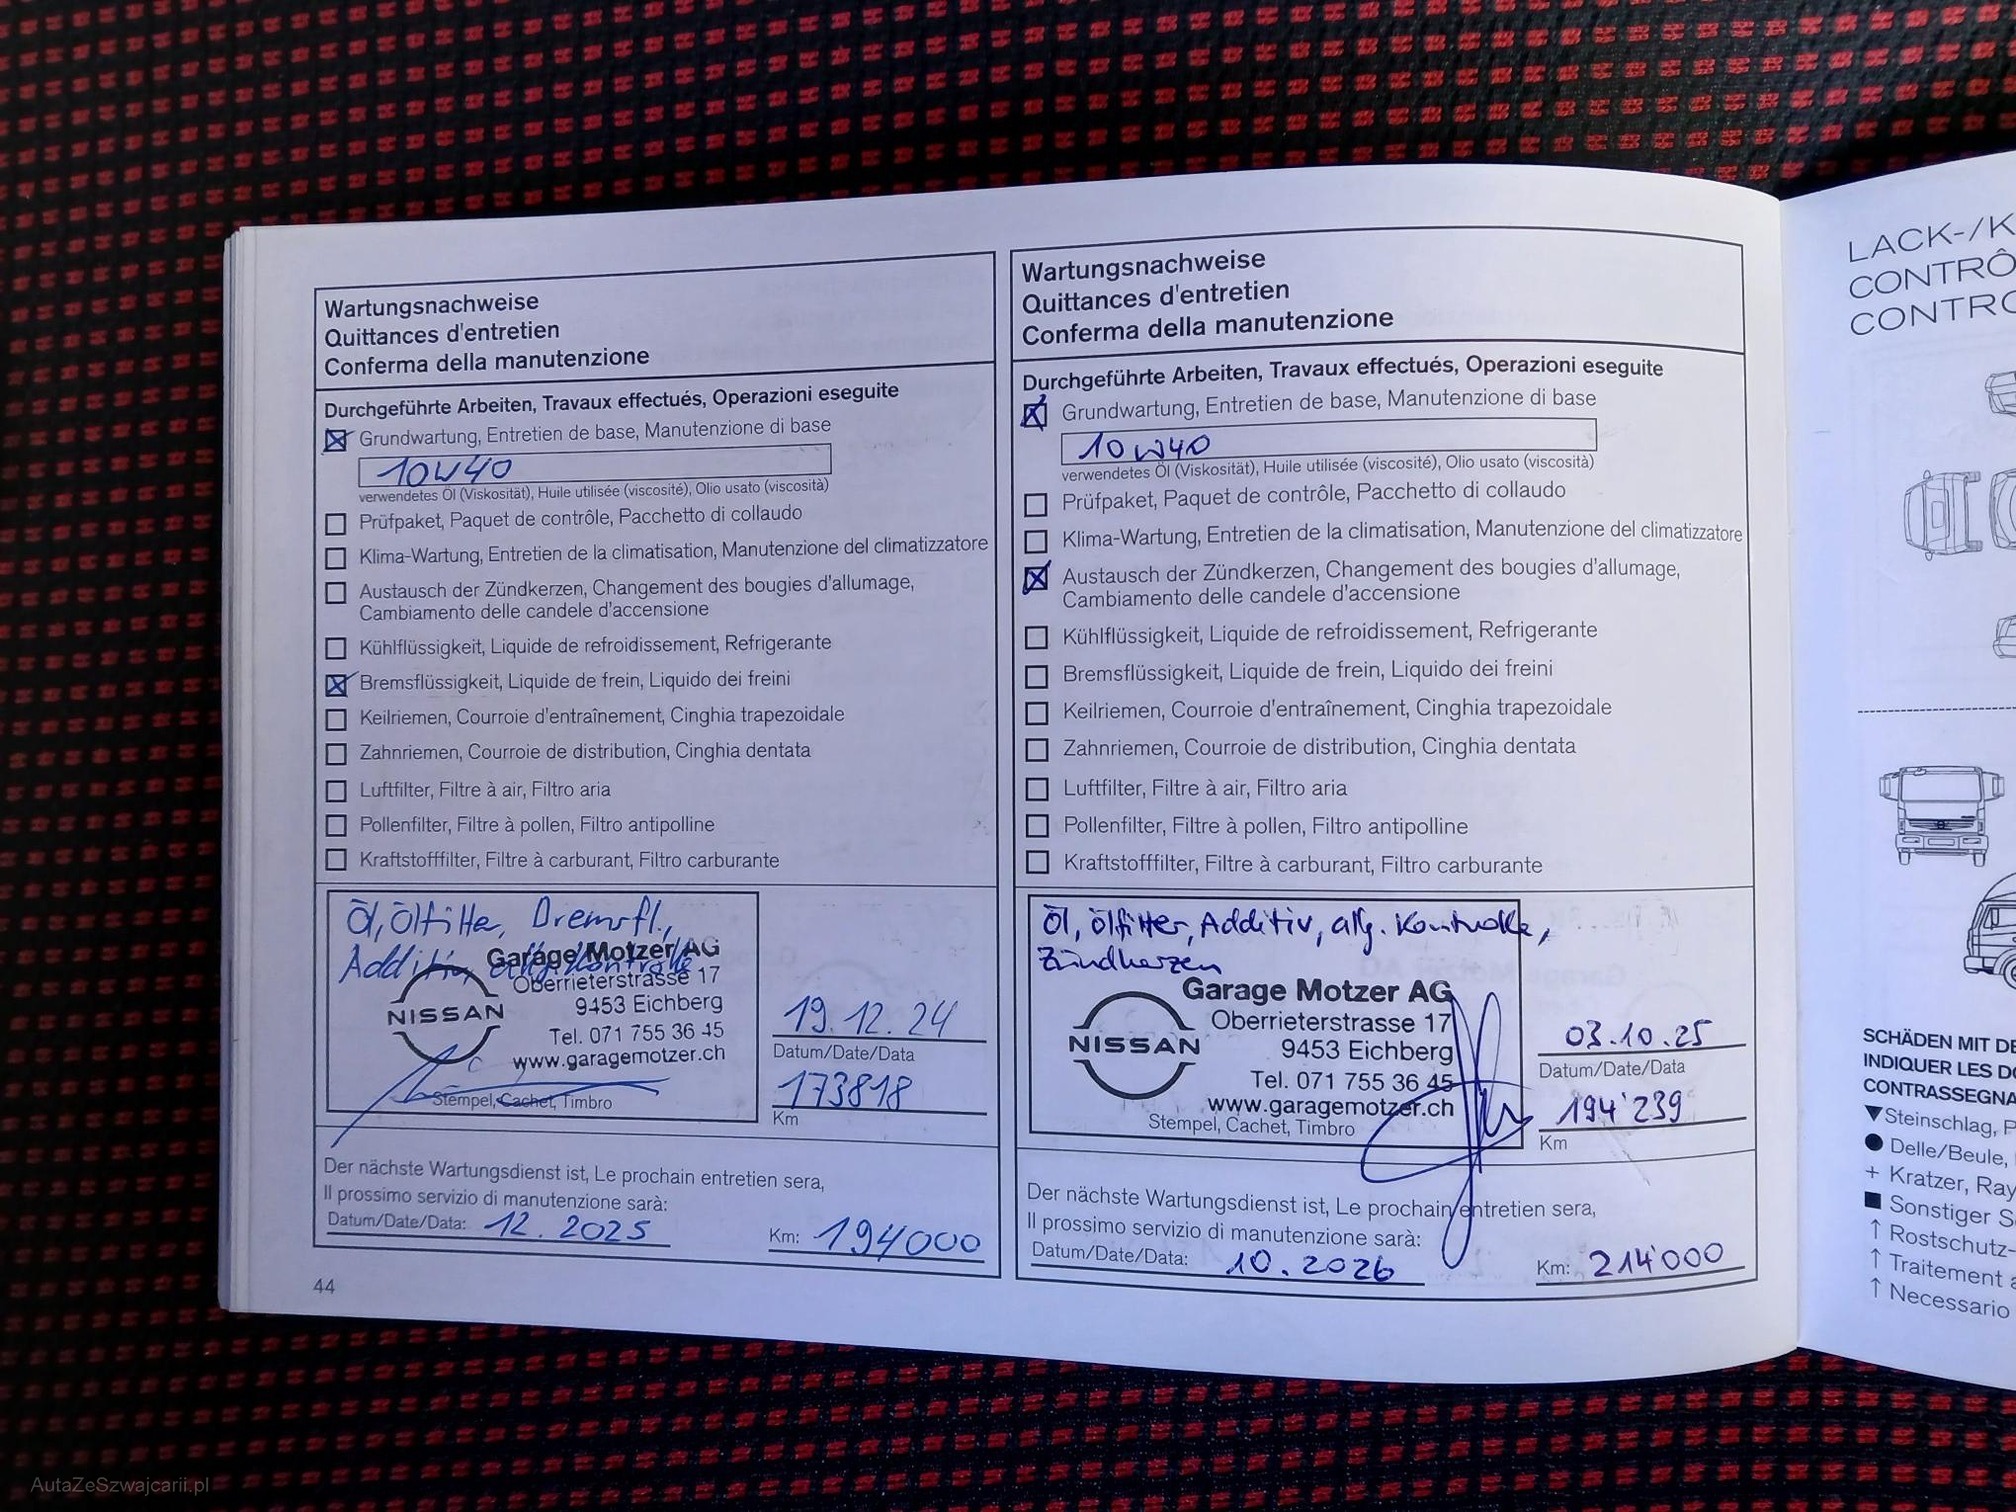 Wartungsnachweise
Quittances d'entretien
Conferma della manutenzione
Durchgeführte Arbeiten, Travaux effectués, Operazioni eseguite
Grundwartung, Entretien de base, Manutenzione di base
10W40
verwendetes Öl (Viskosität), Huile utilisée (viscosité), Olio usato (viscosità)
Prüfpaket, Paquet de contrôle, Pacchetto di collaudo
Klima-Wartung, Entretien de la climatisation, Manutenzione del climatizzatore
Austausch der Zündkerzen, Changement des bougies d'allumage,
Cambiamento delle candele d'accensione
Kühlflüssigkeit, Liquide de refroidissement, Refrigerante
Bremsflüssigkeit, Liquide de frein, Liquido dei freini
Keilriemen, Courroie d'entraînement, Cinghia trapezoidale
Zahnriemen, Courroie de distribution, Cinghia dentata
Luftfilter, Filtre à air, Filtro aria
Pollenfilter, Filtre à pollen, Filtro antipolline
Kraftstofffilter, Filtre à carburant, Filtro carburante
Öl, Ölfilter, Bremsfl.,
Additiv, allg. Kontrolle
Garage Motzer AG
Oberrieterstrasse 17
9453 Eichberg
NISSAN
Tel. 071 755 36 45
www.garagemotzer.ch
Stempel, Cachet, Timbro
19.12.24
Datum/Date/Data
173818
Km
Der nächste Wartungsdienst ist, Le prochain entretien sera,
Il prossimo servizio di manutenzione sarà:
Datum/Date/Data: 12.2025 Km: 194000
44
Wartungsnachweise
Quittances d'entretien
Conferma della manutenzione
Durchgeführte Arbeiten, Travaux effectués, Operazioni eseguite
Grundwartung, Entretien de base, Manutenzione di base
10W40
verwendetes Öl (Viskosität), Huile utilisée (viscosité), Olio usato (viscosità)
Prüfpaket, Paquet de contrôle, Pacchetto di collaudo
Klima-Wartung, Entretien de la climatisation, Manutenzione del climatizzatore
Austausch der Zündkerzen, Changement des bougies d'allumage,
Cambiamento delle candele d'accensione
Kühlflüssigkeit, Liquide de refroidissement, Refrigerante
Bremsflüssigkeit, Liquide de frein, Liquido dei freini
Keilriemen, Courroie d'entraînement, Cinghia trapezoidale
Zahnriemen, Courroie de distribution, Cinghia dentata
Luftfilter, Filtre à air, Filtro aria
Pollenfilter, Filtre à pollen, Filtro antipolline
Kraftstofffilter, Filtre à carburant, Filtro carburante
Öl, Ölfilter, Additiv, allg. Kontrolle,
Zündkerzen
Garage Motzer AG
Oberrieterstrasse 17
NISSAN
9453 Eichberg
Tel. 071 755 36 45
www.garagemotzer.ch
Stempel, Cachet, Timbro
03.10.25
Datum/Date/Data
194'239
Km
Der nächste Wartungsdienst ist, Le prochain entretien sera,
Il prossimo servizio di manutenzione sarà:
Datum/Date/Data: 10.2026 Km: 214'000
LACK-/K
CONTRÔ
CONTRO
SCHÄDEN MIT DE
INDIQUER LES DO
CONTRASSEGNA
▼ Steinschlag, P
● Delle/Beule,
+ Kratzer, Ray
■ Sonstiger S
↑ Rostschutz-
↑ Traitement a
↑ Necessario
AutaZeSzwajcarii.pl